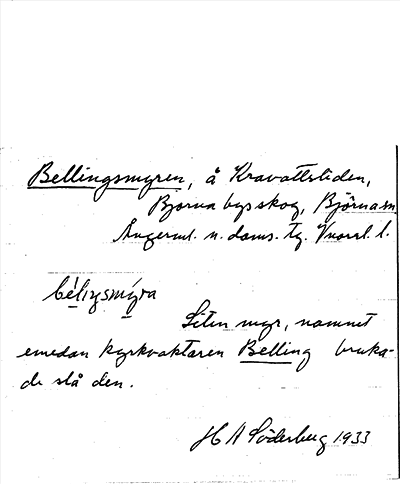 Bellingsmyren, å Kravattsliden,
Bjorna bys skog, Björna sn.
Ångerml. n. doms. tg. Vnorrl. l.
béliŋsmýra
Liten myr, namnet
emedan kyrkvaktaren Belling bruka-
de slå den.
H A Söderberg 1933